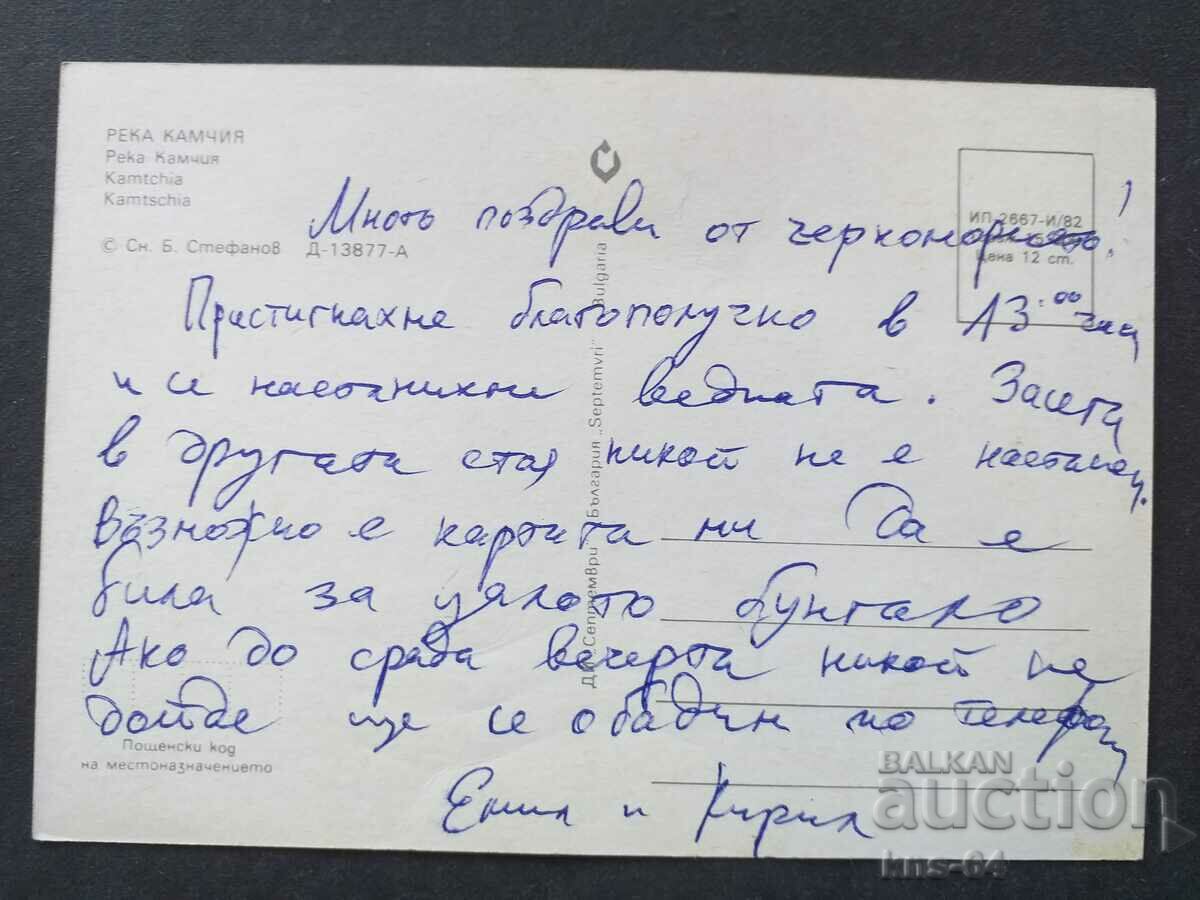 РЕКА КАМЧИЯ
Река Камчия
Kamtchia
Kamtschia
© Сн. Б. Стефанов Д-13877-А
ИП 2667-И/82
Цена 12 ст.
Много поздрави от черноморието!
Пристигнахме благополучно в 13:00 часа
и се настанихме веднага. Засега
в другата стая никой не е настанен.
Възможно е картата ни да е
била за цялото бунгало
Ако до сряда вечерта никой не
дойде ще се обадим по телефон
Емил и Кирил
ДП „Септември" България „Septemvri" Bulgaria
Пощенски код
на местоназначението
BALKAN
auction
kns-64